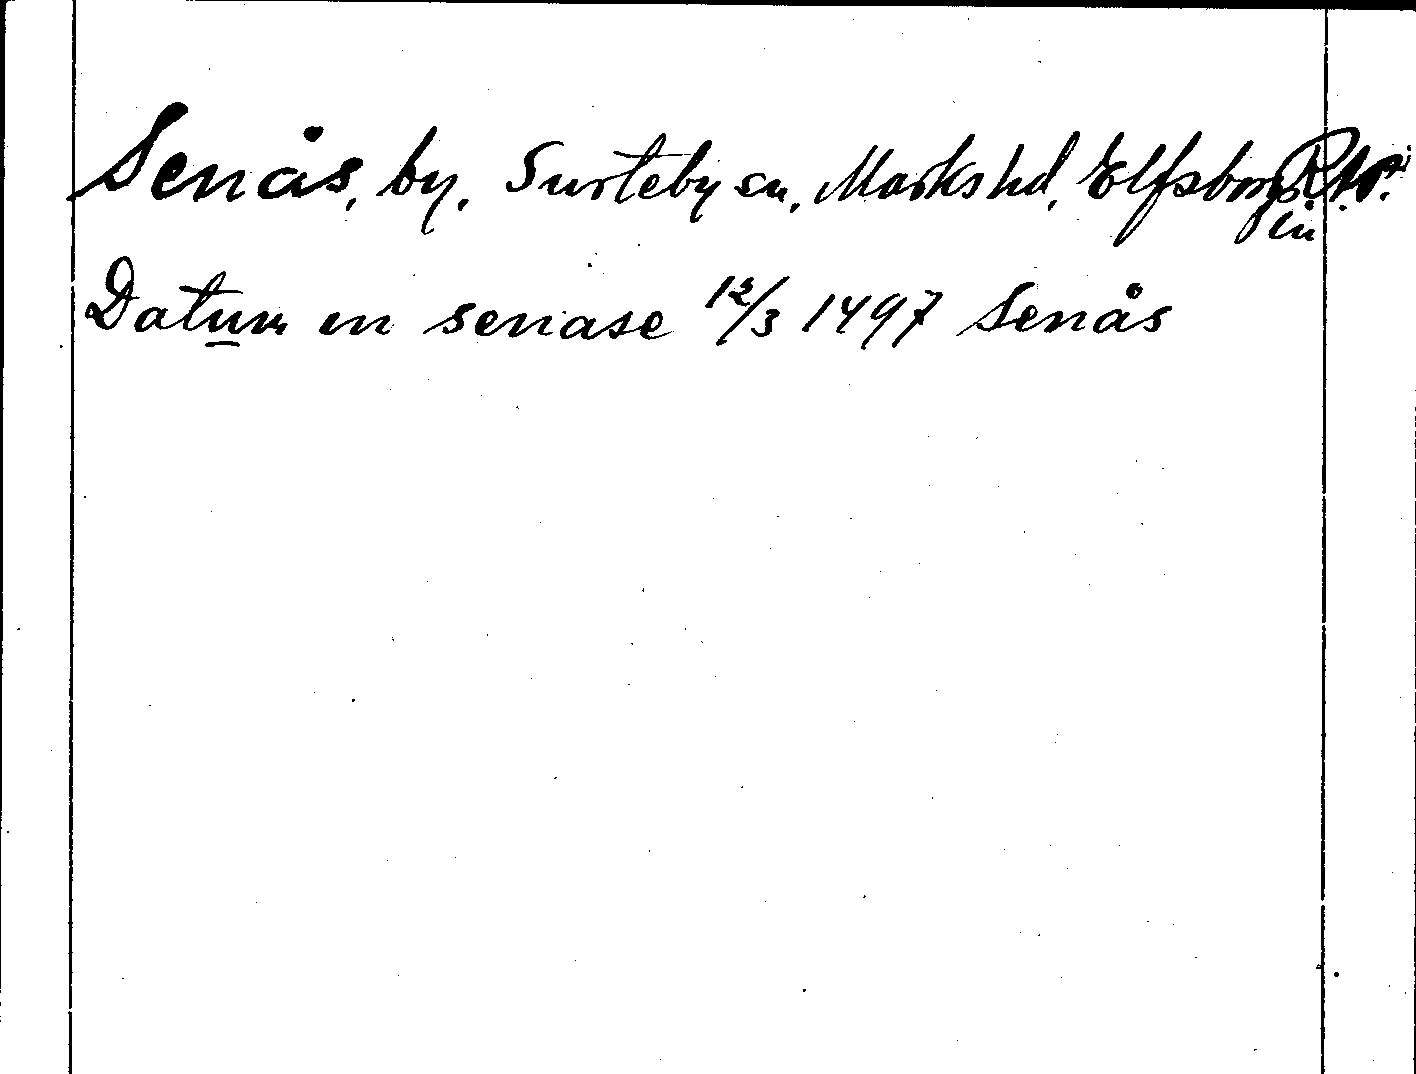 Senås, by, Surteby sn, Marks hd, Elfsborgs
län
Datum in senase 12/3 1497 Senås